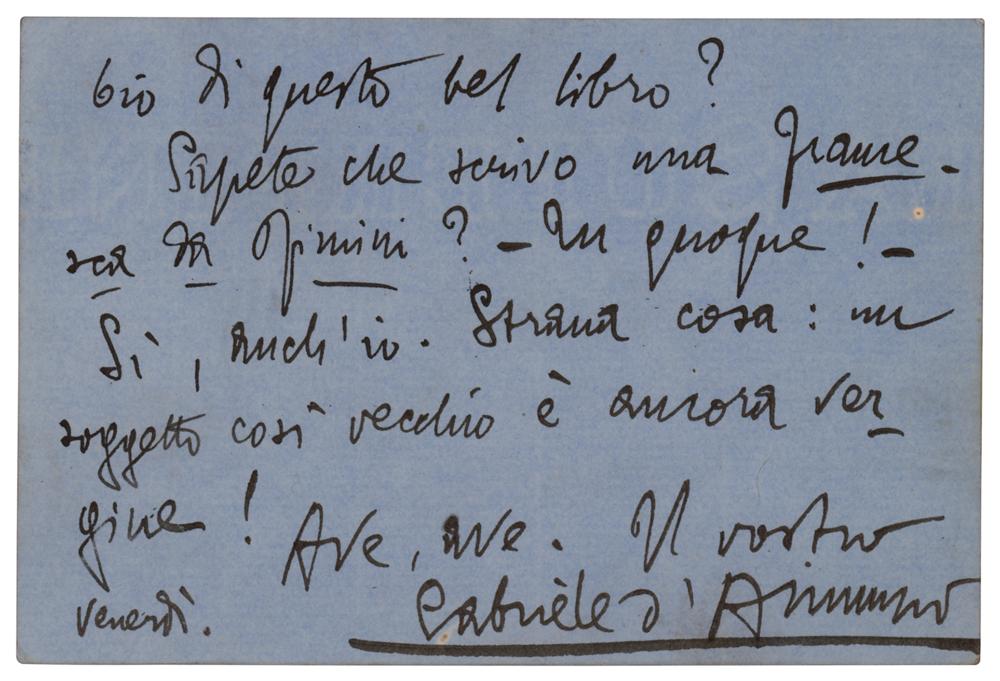 bio di questo bel libro?
Sapete che scrivo una France-
sca da Rimini? – Tu quoque! –
Sì, anch'io. Strana cosa: un
soggetto così vecchio è ancora ver
gine! Ave, ave. Il vostro
venerdì. Gabriele d'Annunzio